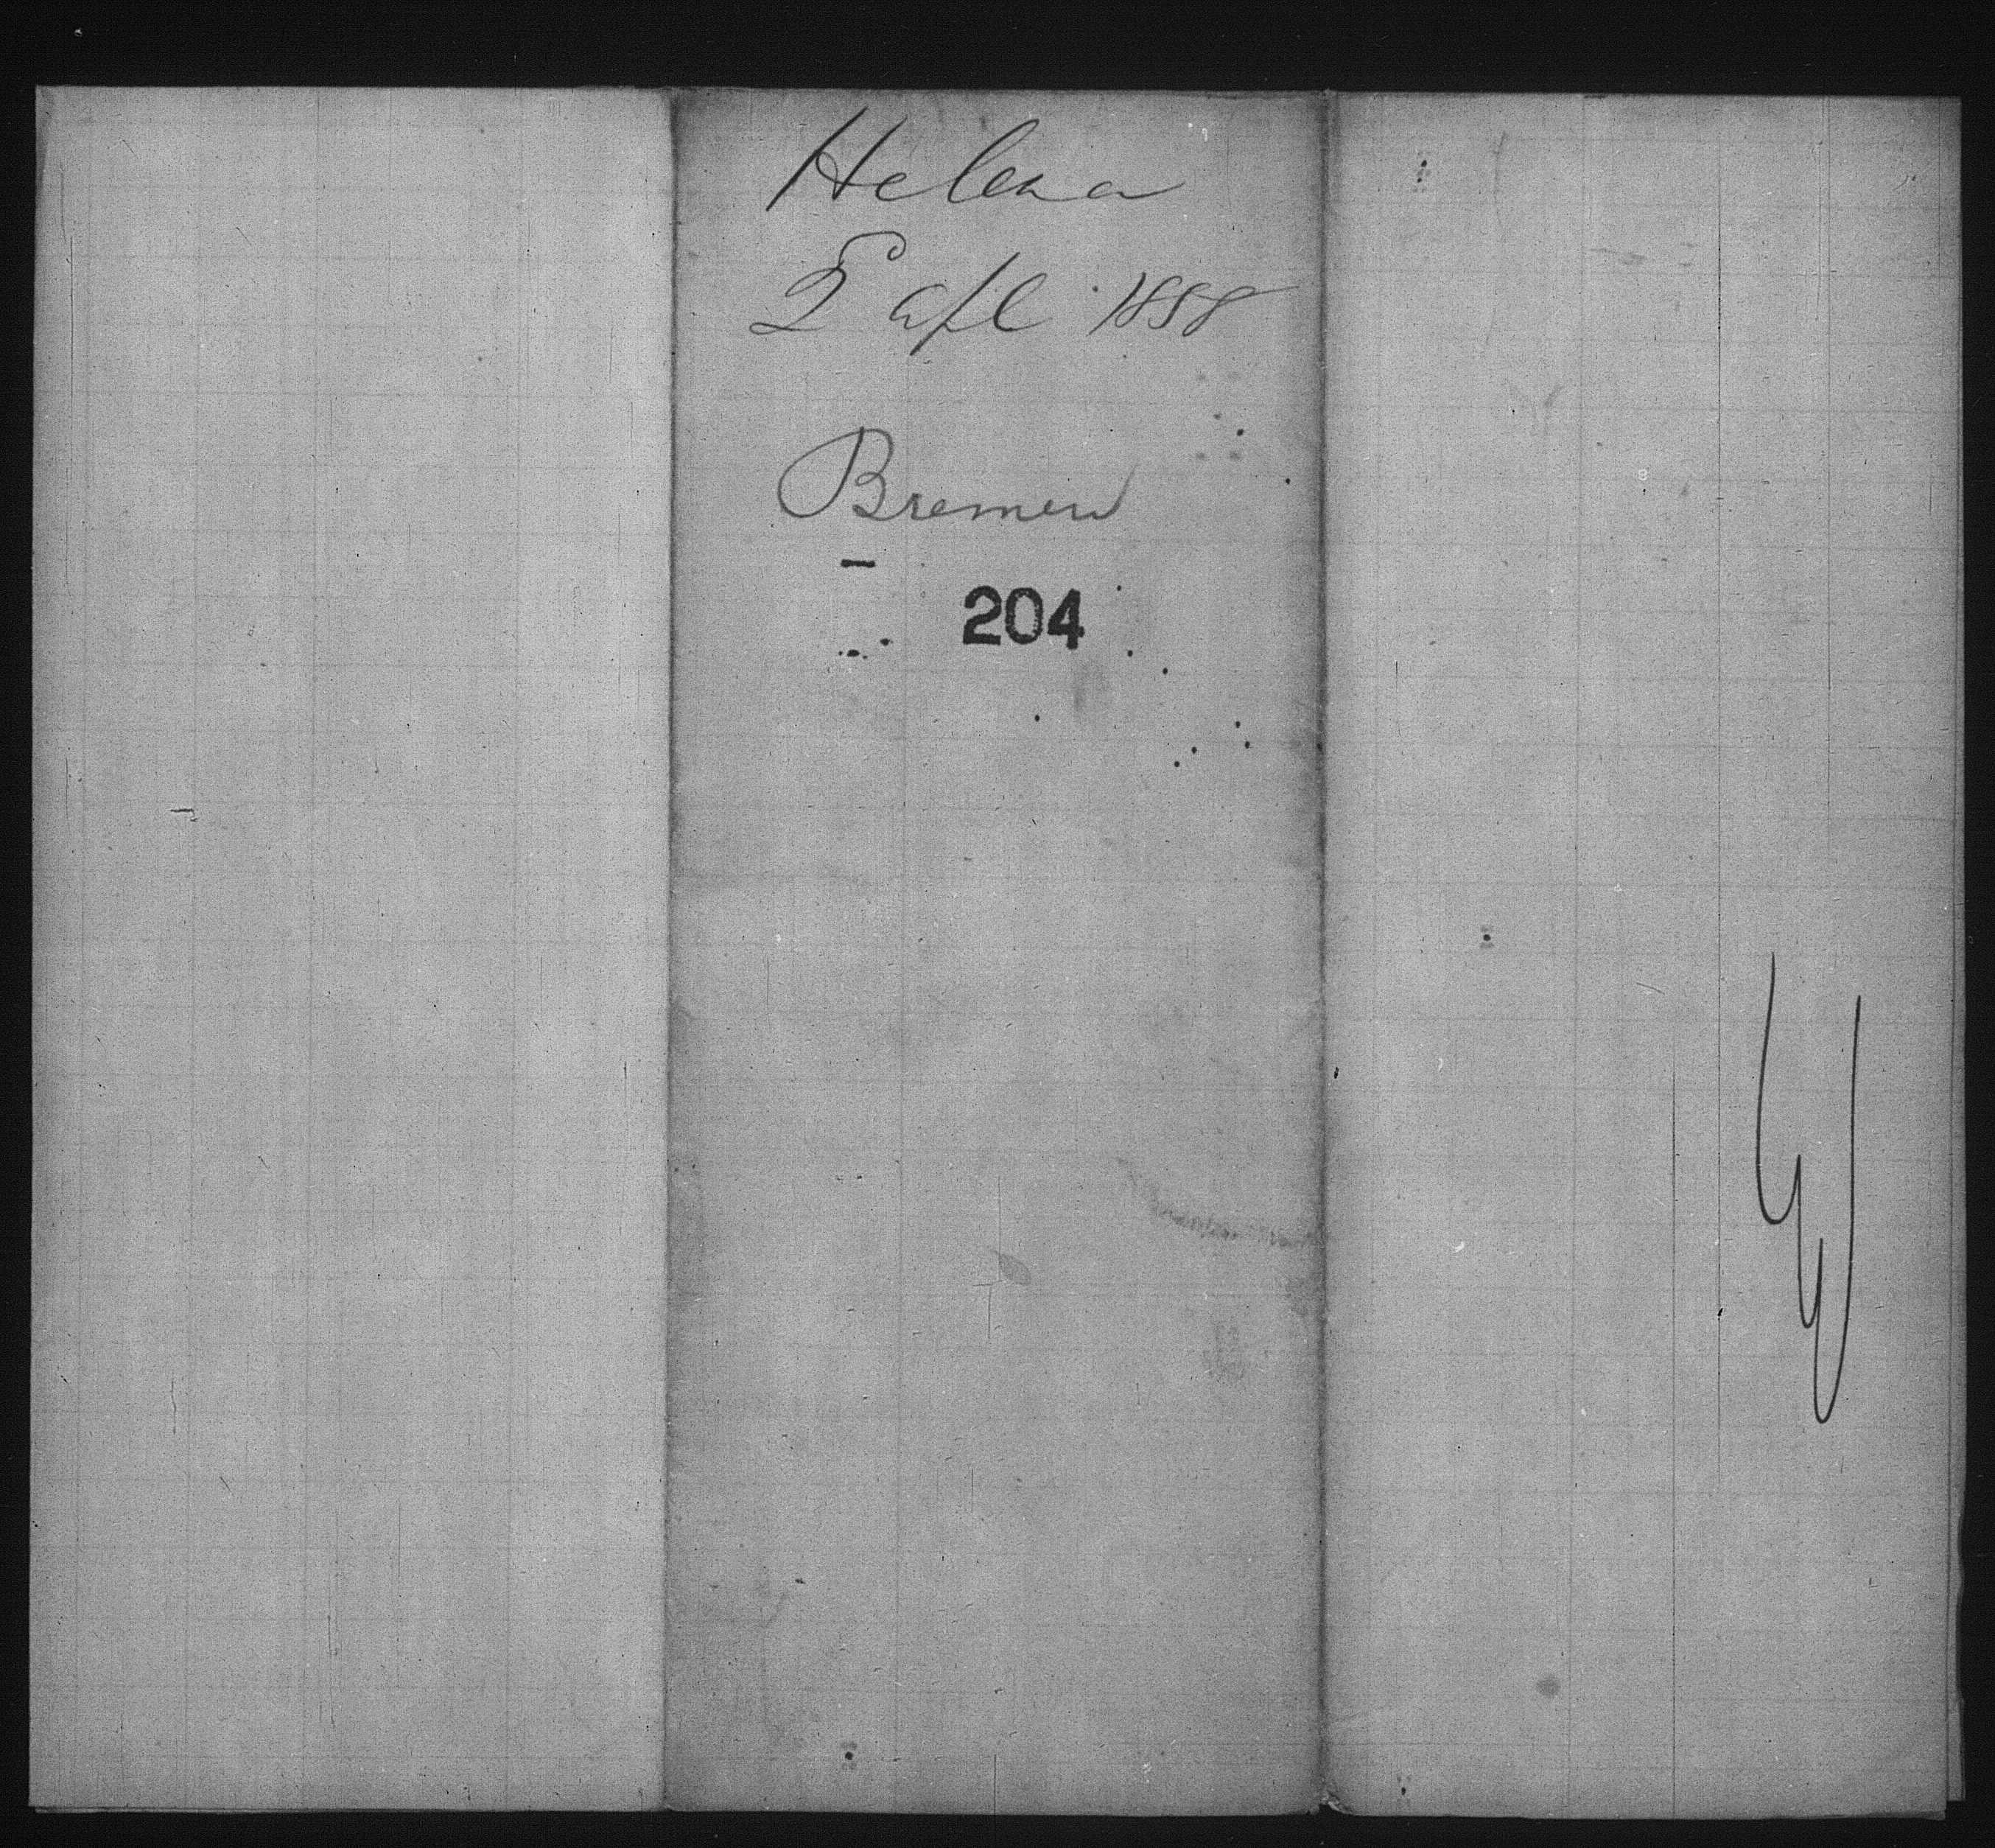 Helena
2 apl 1888
Bremen
204